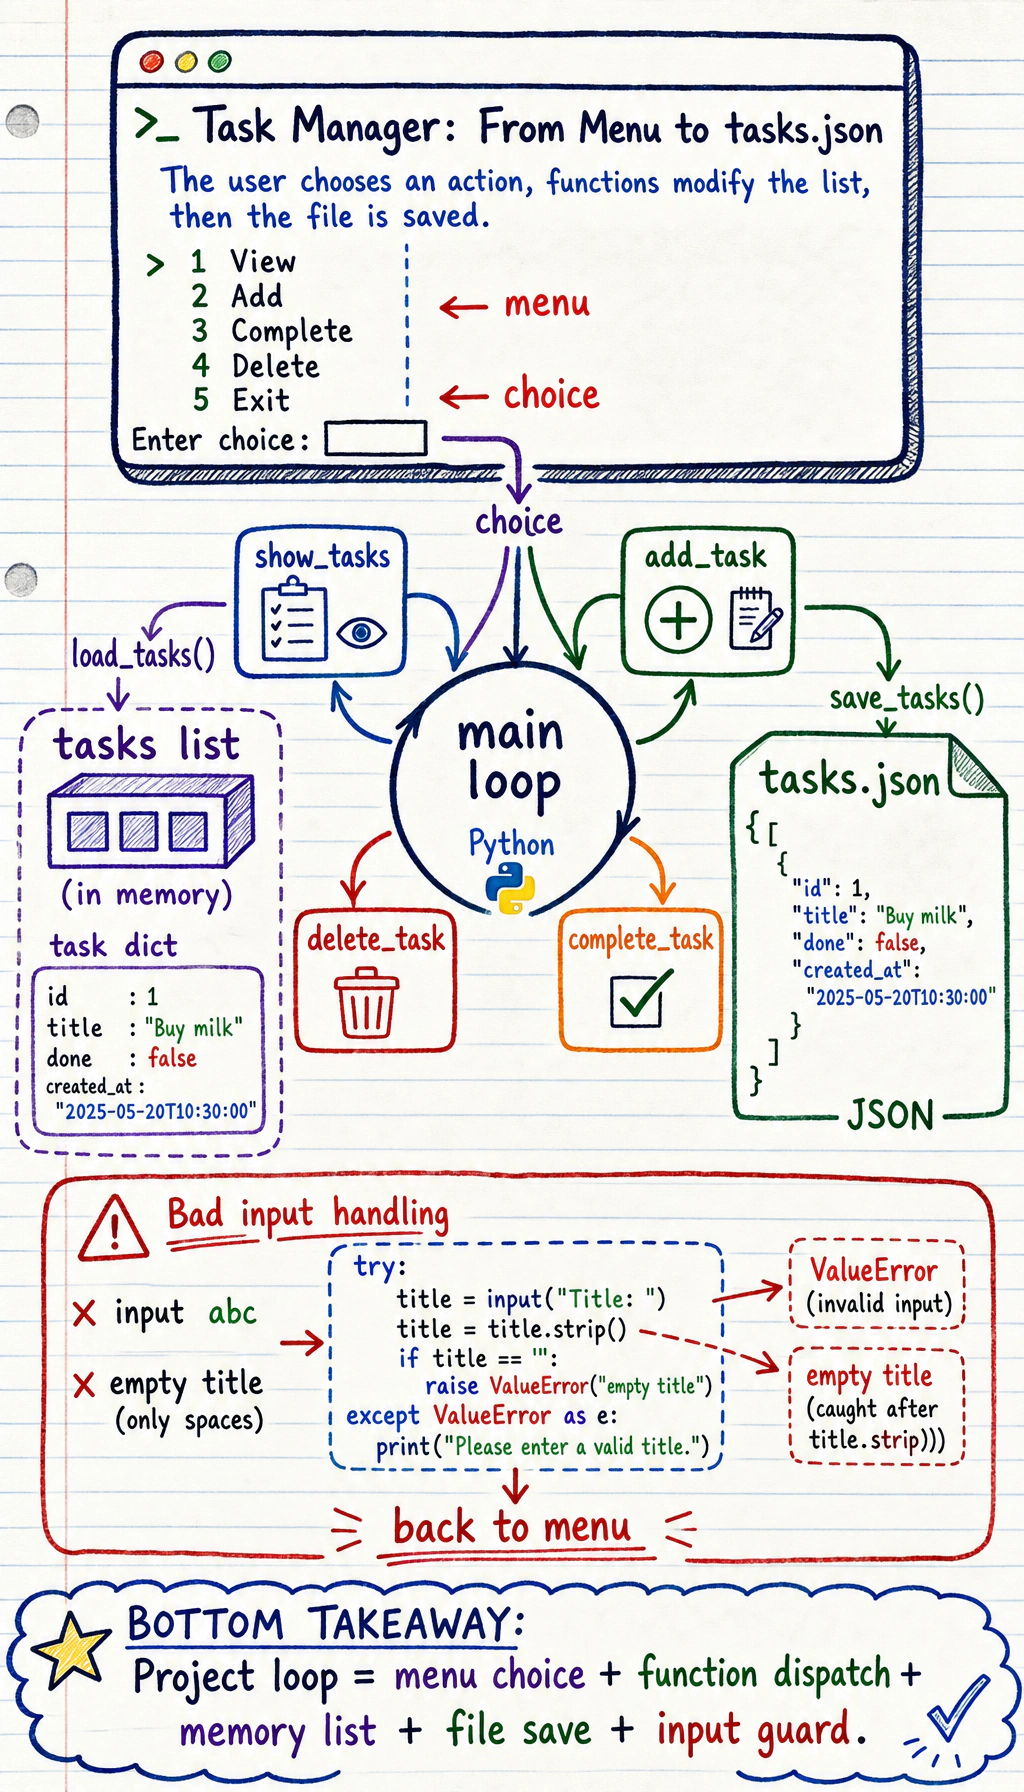 >_ Task Manager: From Menu to tasks.json
The user chooses an action, functions modify the list,
then the file is saved.
> 1 View
2 Add
3 Complete
4 Delete
5 Exit
← menu
← choice
Enter choice:
choice
show_tasks
add_task
load_tasks()
save_tasks()
main
loop
Python
tasks list
(in memory)
task dict
id : 1
title : "Buy milk"
done : false
created_at :
"2025-05-20T10:30:00"
delete_task
complete_task
tasks.json
{ [
{
"id": 1,
"title": "Buy milk",
"done": false,
"created_at":
"2025-05-20T10:30:00"
}
]
}
JSON
Bad input handling
✗ input abc
✗ empty title
(only spaces)
try:
title = input("Title: ")
title = title.strip()
if title == "":
raise ValueError("empty title")
except ValueError as e:
print("Please enter a valid title.")
ValueError
(invalid input)
empty title
(caught after
title.strip)))
back to menu
BOTTOM TAKEAWAY:
Project loop = menu choice + function dispatch +
memory list + file save + input guard.